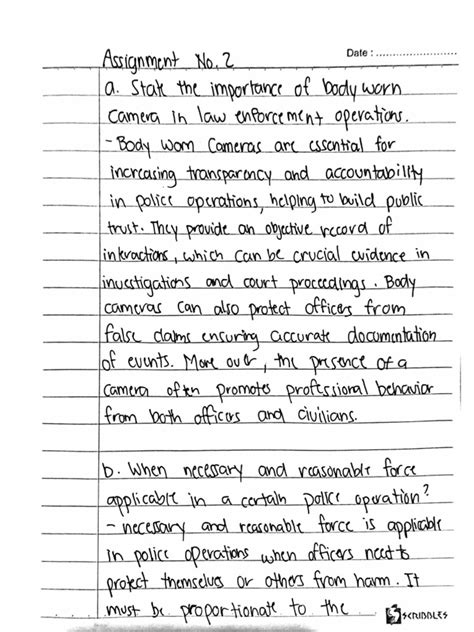 Date : ........................
Assignment No. 2
a. State the importance of body worn
camera in law enforcement operations.
- Body Worn Cameras are essential for
increasing transparency and accountability
in police operations, helping to build public
trust. They provide an objective record of
interactions, which can be crucial evidence in
investigations and court proceedings. Body
cameras can also protect officers from
false claims ensuring accurate documentation
of events. More over, the presence of a
camera often promotes professional behavior
from both officers and civilians.
b. When necessary and reasonable force
applicable in a certain police operation?
- necessary and reasonable force is applicable
in police operations when officers need to
protect themselves or others from harm. It
must be proportionate to the
SCRIBBLES